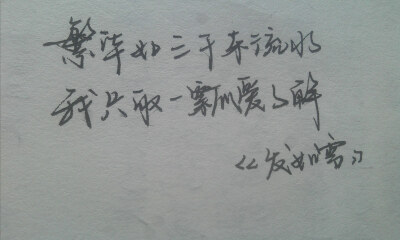 繁华如三千东流水
我只取一瓢爱了解
《发如雪》